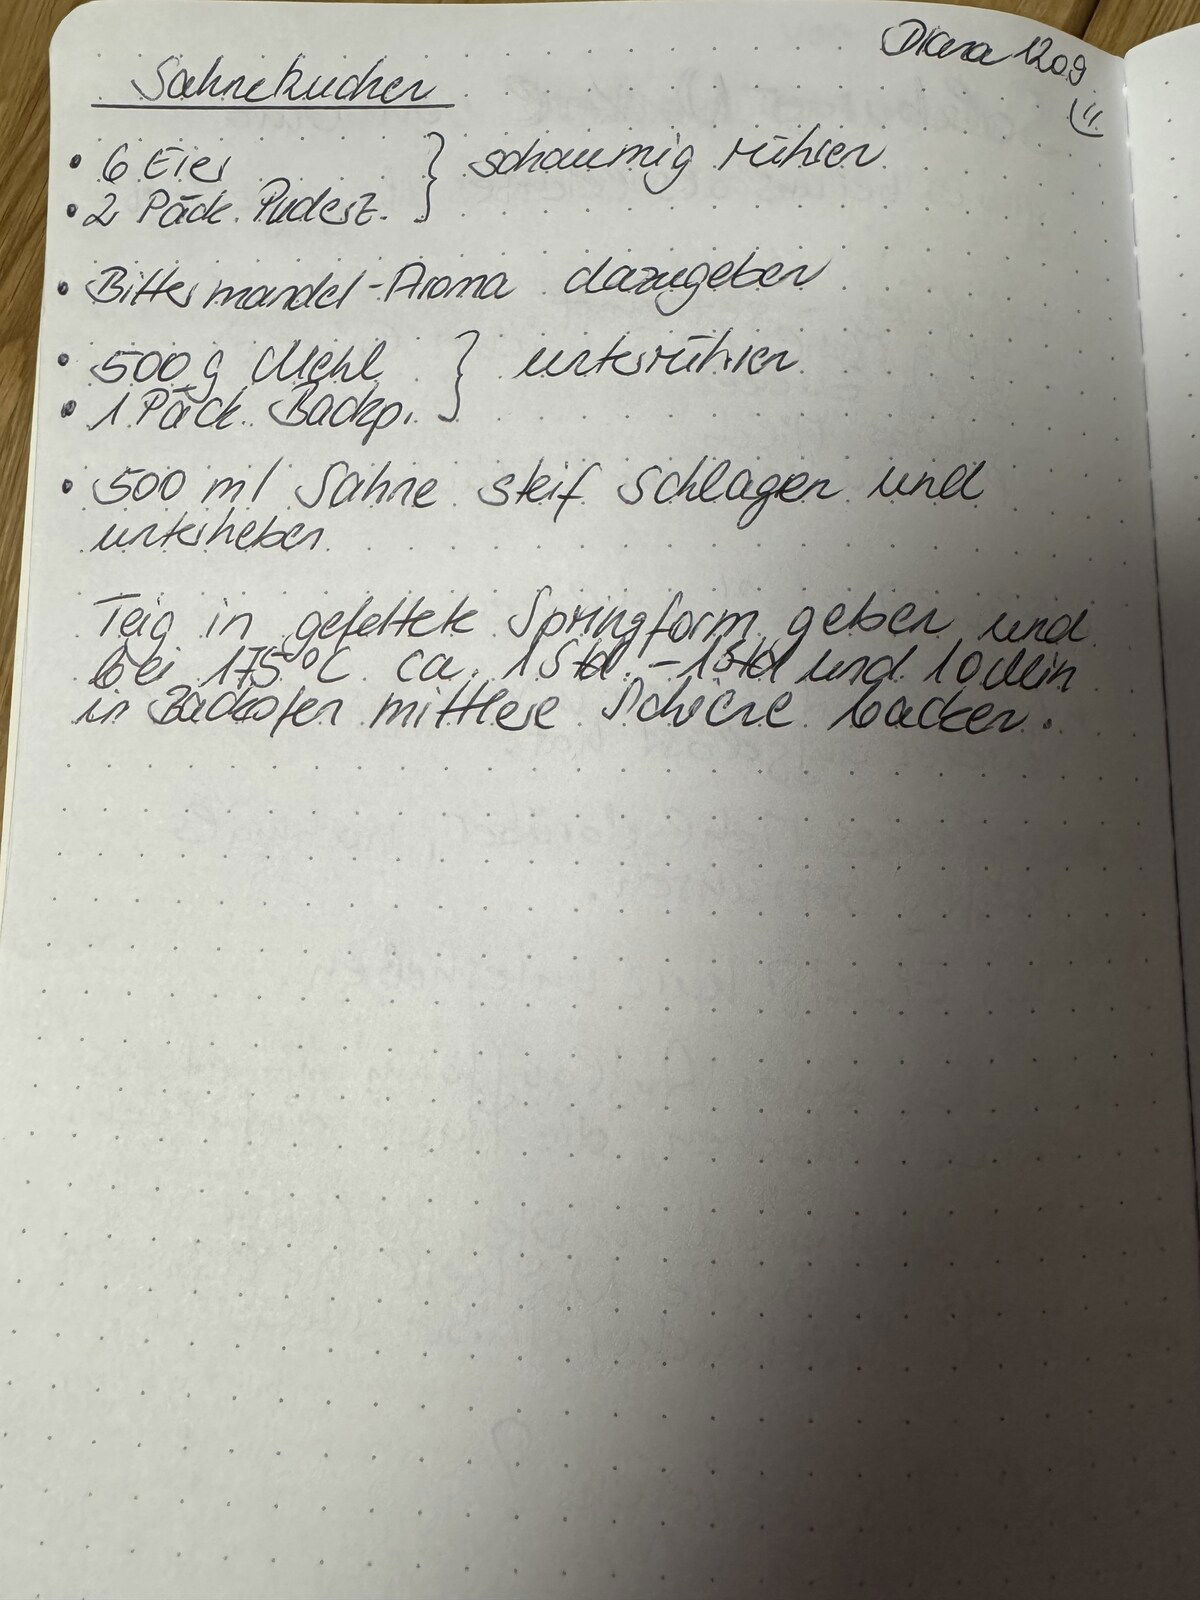 Diana 1209
Sahnekuchen
• 6 Eier } schaumig rühren
• 2 Päck. Puderz.
• Bittermandel-Aroma dazugeben
• 500 g Mehl } unterrühren
• 1 Päck. Backp.
• 500 ml Sahne steif schlagen und
unterheben
Teig in gefettete Springform geben und
bei 175°C ca. 1 Std. - 1 Std und 10 Min
in Backofen mittlere Schiene backen.